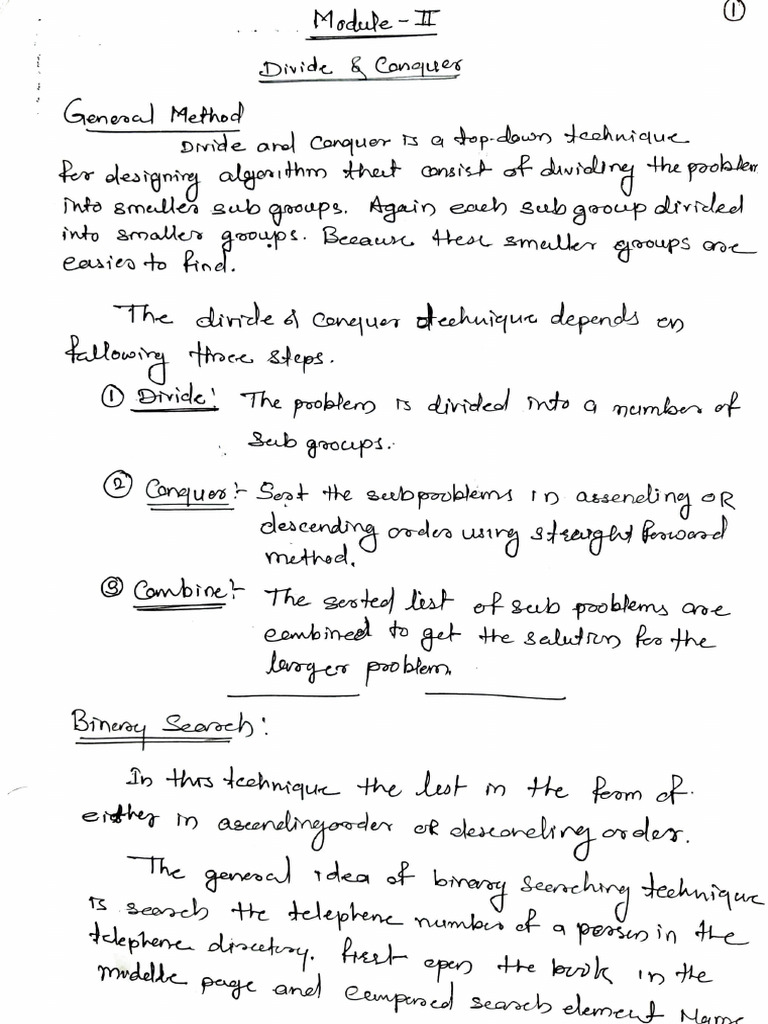 ①
Module - II
Divide & Conquer
General Method
Divide and Conquer is a top-down technique
for designing algorithm that consist of dividing the problem
into smaller sub groups. Again each sub group divided
into smaller groups. Because these smaller groups are
easier to find.
The divide & conquer technique depends on
following three steps.
① Divide: The problem is divided into a number of
sub groups.
② Conquer:- Sort the subproblems in assending OR
descending order using straight forward
method.
③ Combine:- The sorted list of sub problems are
combined to get the solution for the
larger problem.
Binary Search:
In this technique the list in the form of
either in ascending order OR descending order.
The general idea of binary searching technique
is search the telephone number of a person in the
telephone directory. First open the book in the
middle page and compared search element Name